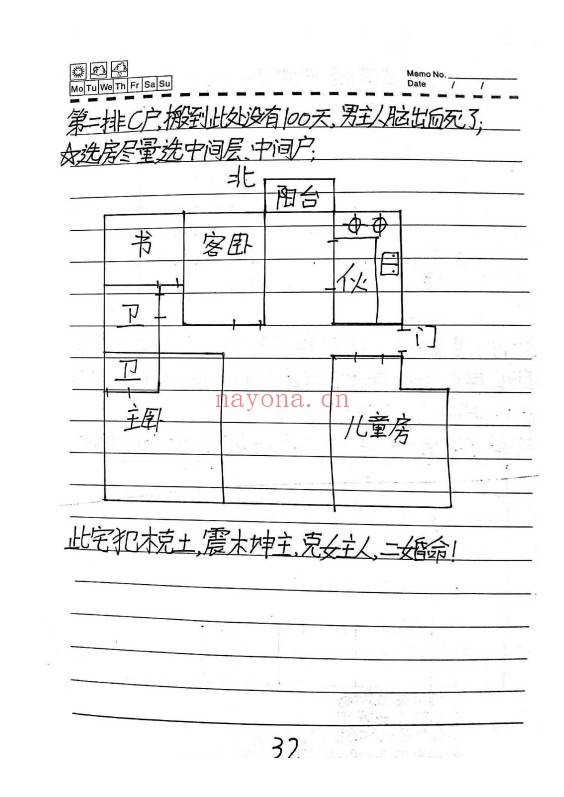 Memo No.
Mo Tu We Th Fr Sa Su
Date / /
第二排C户,搬到此处没有100天,男主人脑出血死了;
☆选房尽量选中间层、中间户;
北
阳台
书
客卧
伙
卫
门
卫
nayona.cn
主卧
儿童房
此宅犯木克土,震木坤主,克女主人,二婚命!
32